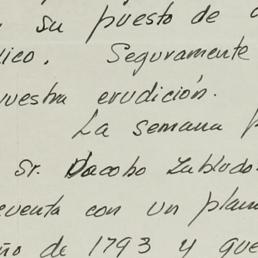 su puesto de
ico. Seguramente
uestra erudición.
La semana p
Sr. Jacobo Zabludo
cuenta con un plan
ño de 1793 y que